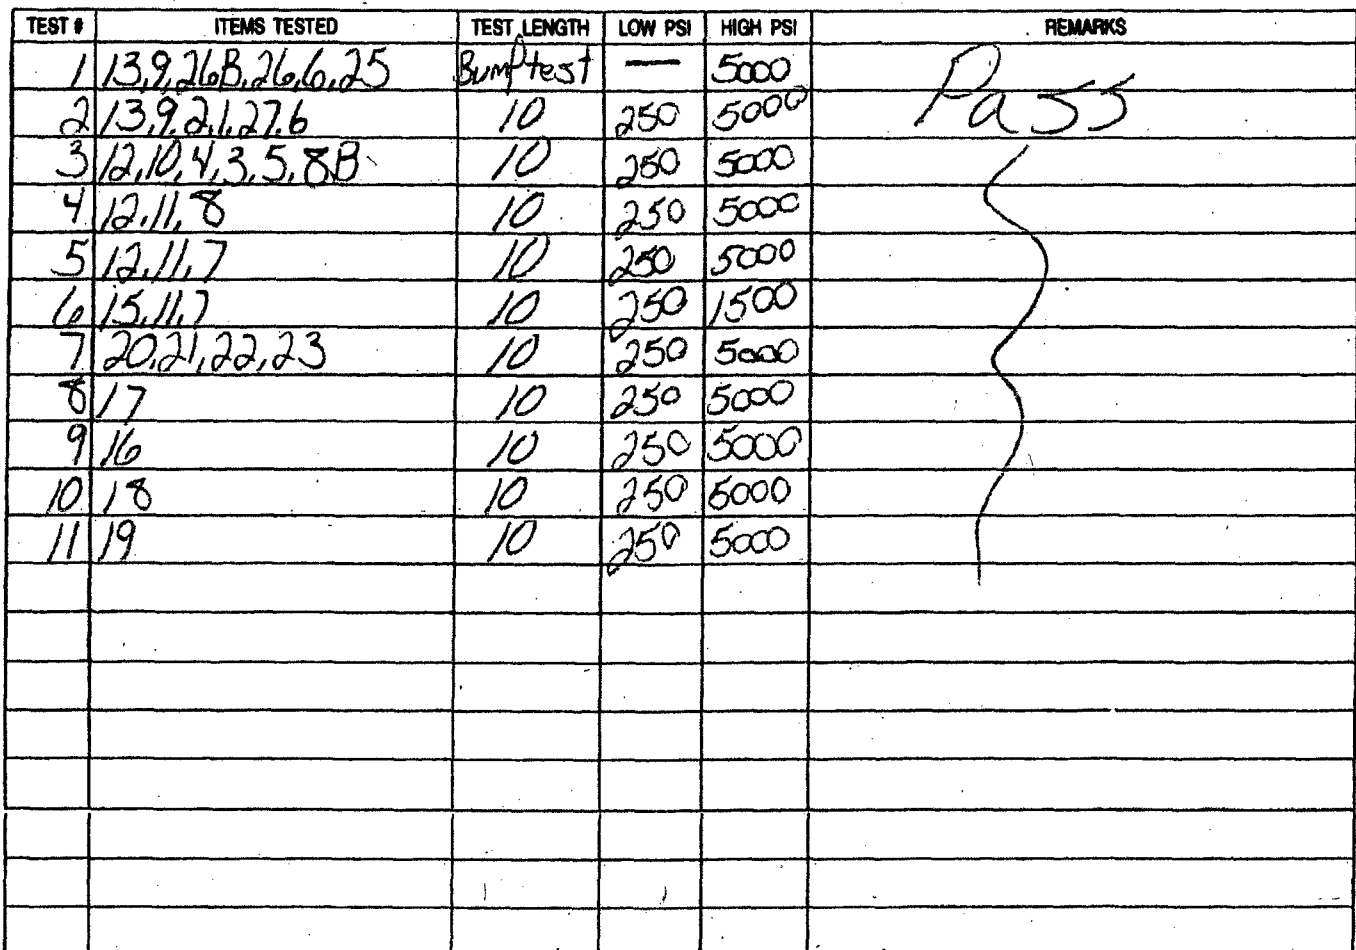 TEST # ITEMS TESTED TEST LENGTH LOW PSI HIGH PSI REMARKS
1 13,9,26B,26,6,25 Bump test — 5000 Pass
2 13,9,2,1,27,6 10 250 5000
3 12,10,4,3,5,8B 10 250 5000
4 12,11,8 10 250 5000
5 12,11,7 10 250 5000
6 15,11,7 10 250 1500
7 20,21,22,23 10 250 5000
8 17 10 250 5000
9 16 10 250 5000
10 18 10 250 5000
11 19 10 250 5000